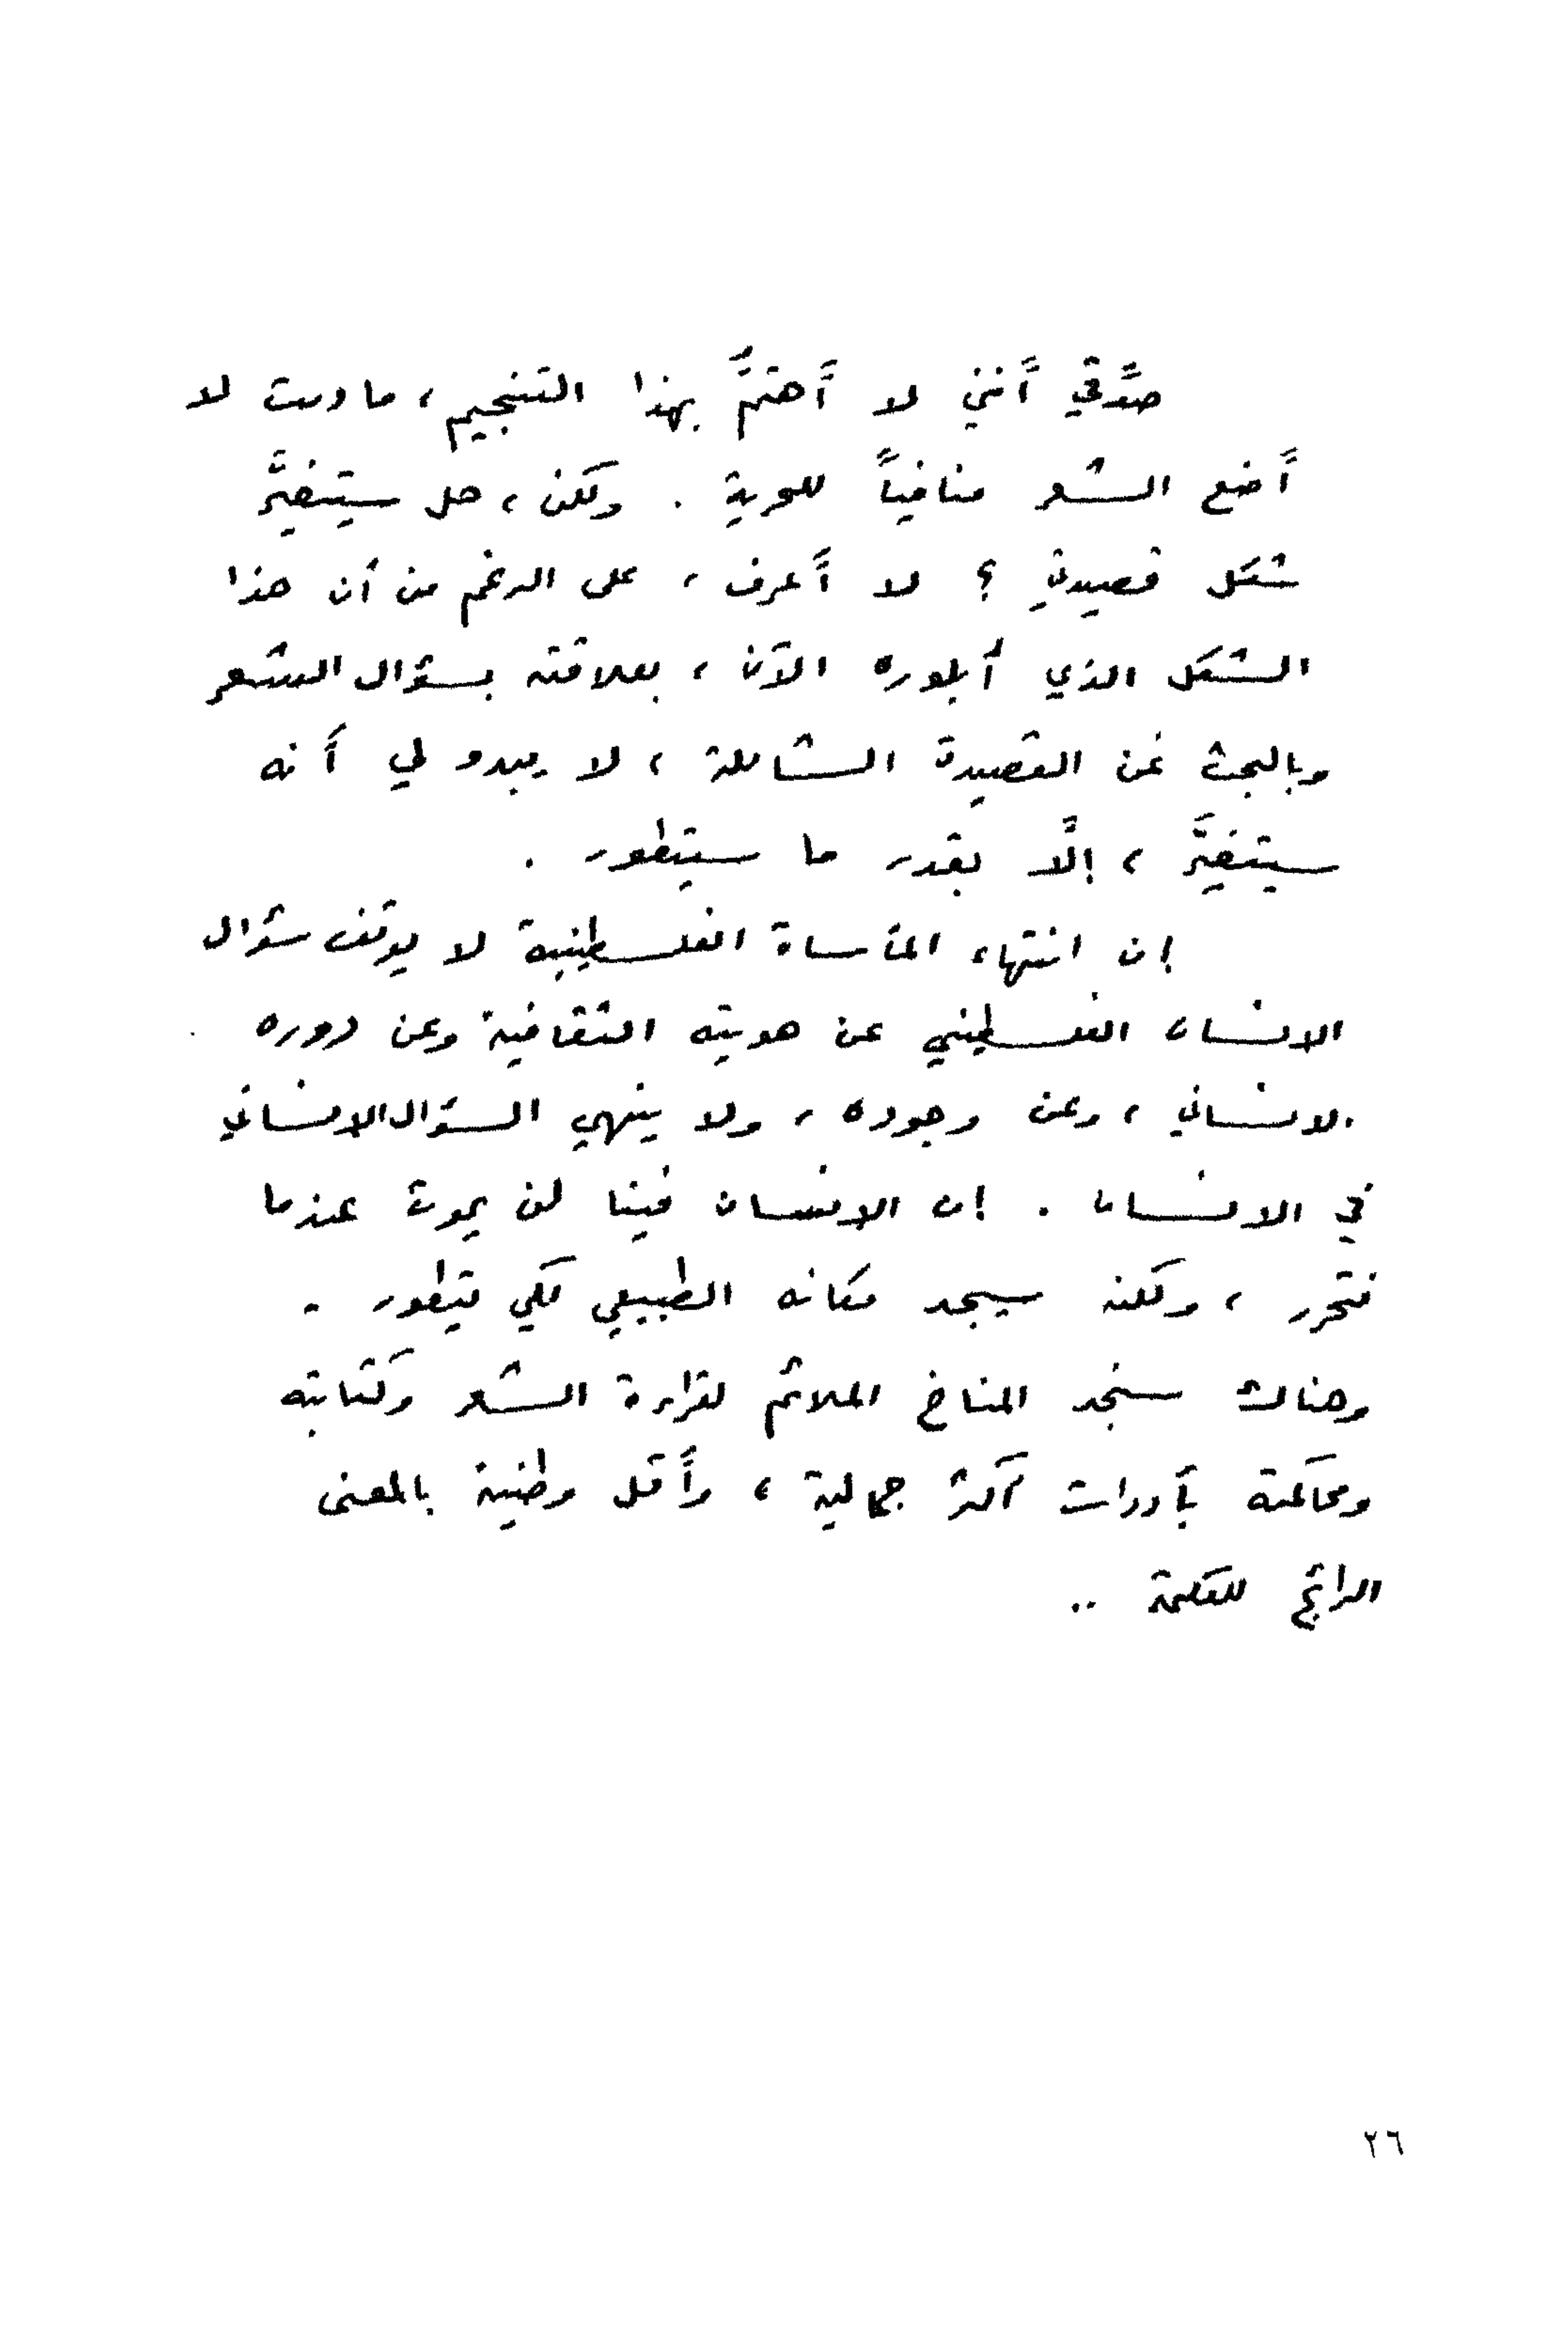 صدَّقي أَنني لا أَهتمُّ بهذا التنجيم، ما دمت لا
أَضع الشعر منافياً للحرية . ولكن، هل سيتغيَّر
شكل قصيدتي ؟ لا أَعرف، على الرغم من أن هذا
الشكل الذي أُبلوره الآن، بعلاقته بسؤال الشعر
وبالبحث عن القصيدة الشاملة، لا يبدو لي أَنه
سيتغيَّر، إلَّا بقدر ما سيتطور .
إن انتهاء المأساة الفلسطينية لا يوقف سؤال
الانسان الفلسطيني عن هويته الثقافية وعن دوره
الانساني، وعن وجوده، ولا ينهي السؤال الانساني
في الانسان . إن الانسان فينا لن يموت عندما
نتحرر، ولكنه سيجد مكانه الطبيعي لكي يتطور .
وهناك سنجد المناخ الملائم لقراءة الشعر وكتابته
ومحاكمته بأدوات أكثر جمالية، وأَقل وطنية بالمعنى
الرائج للكلمة ..
٢٦